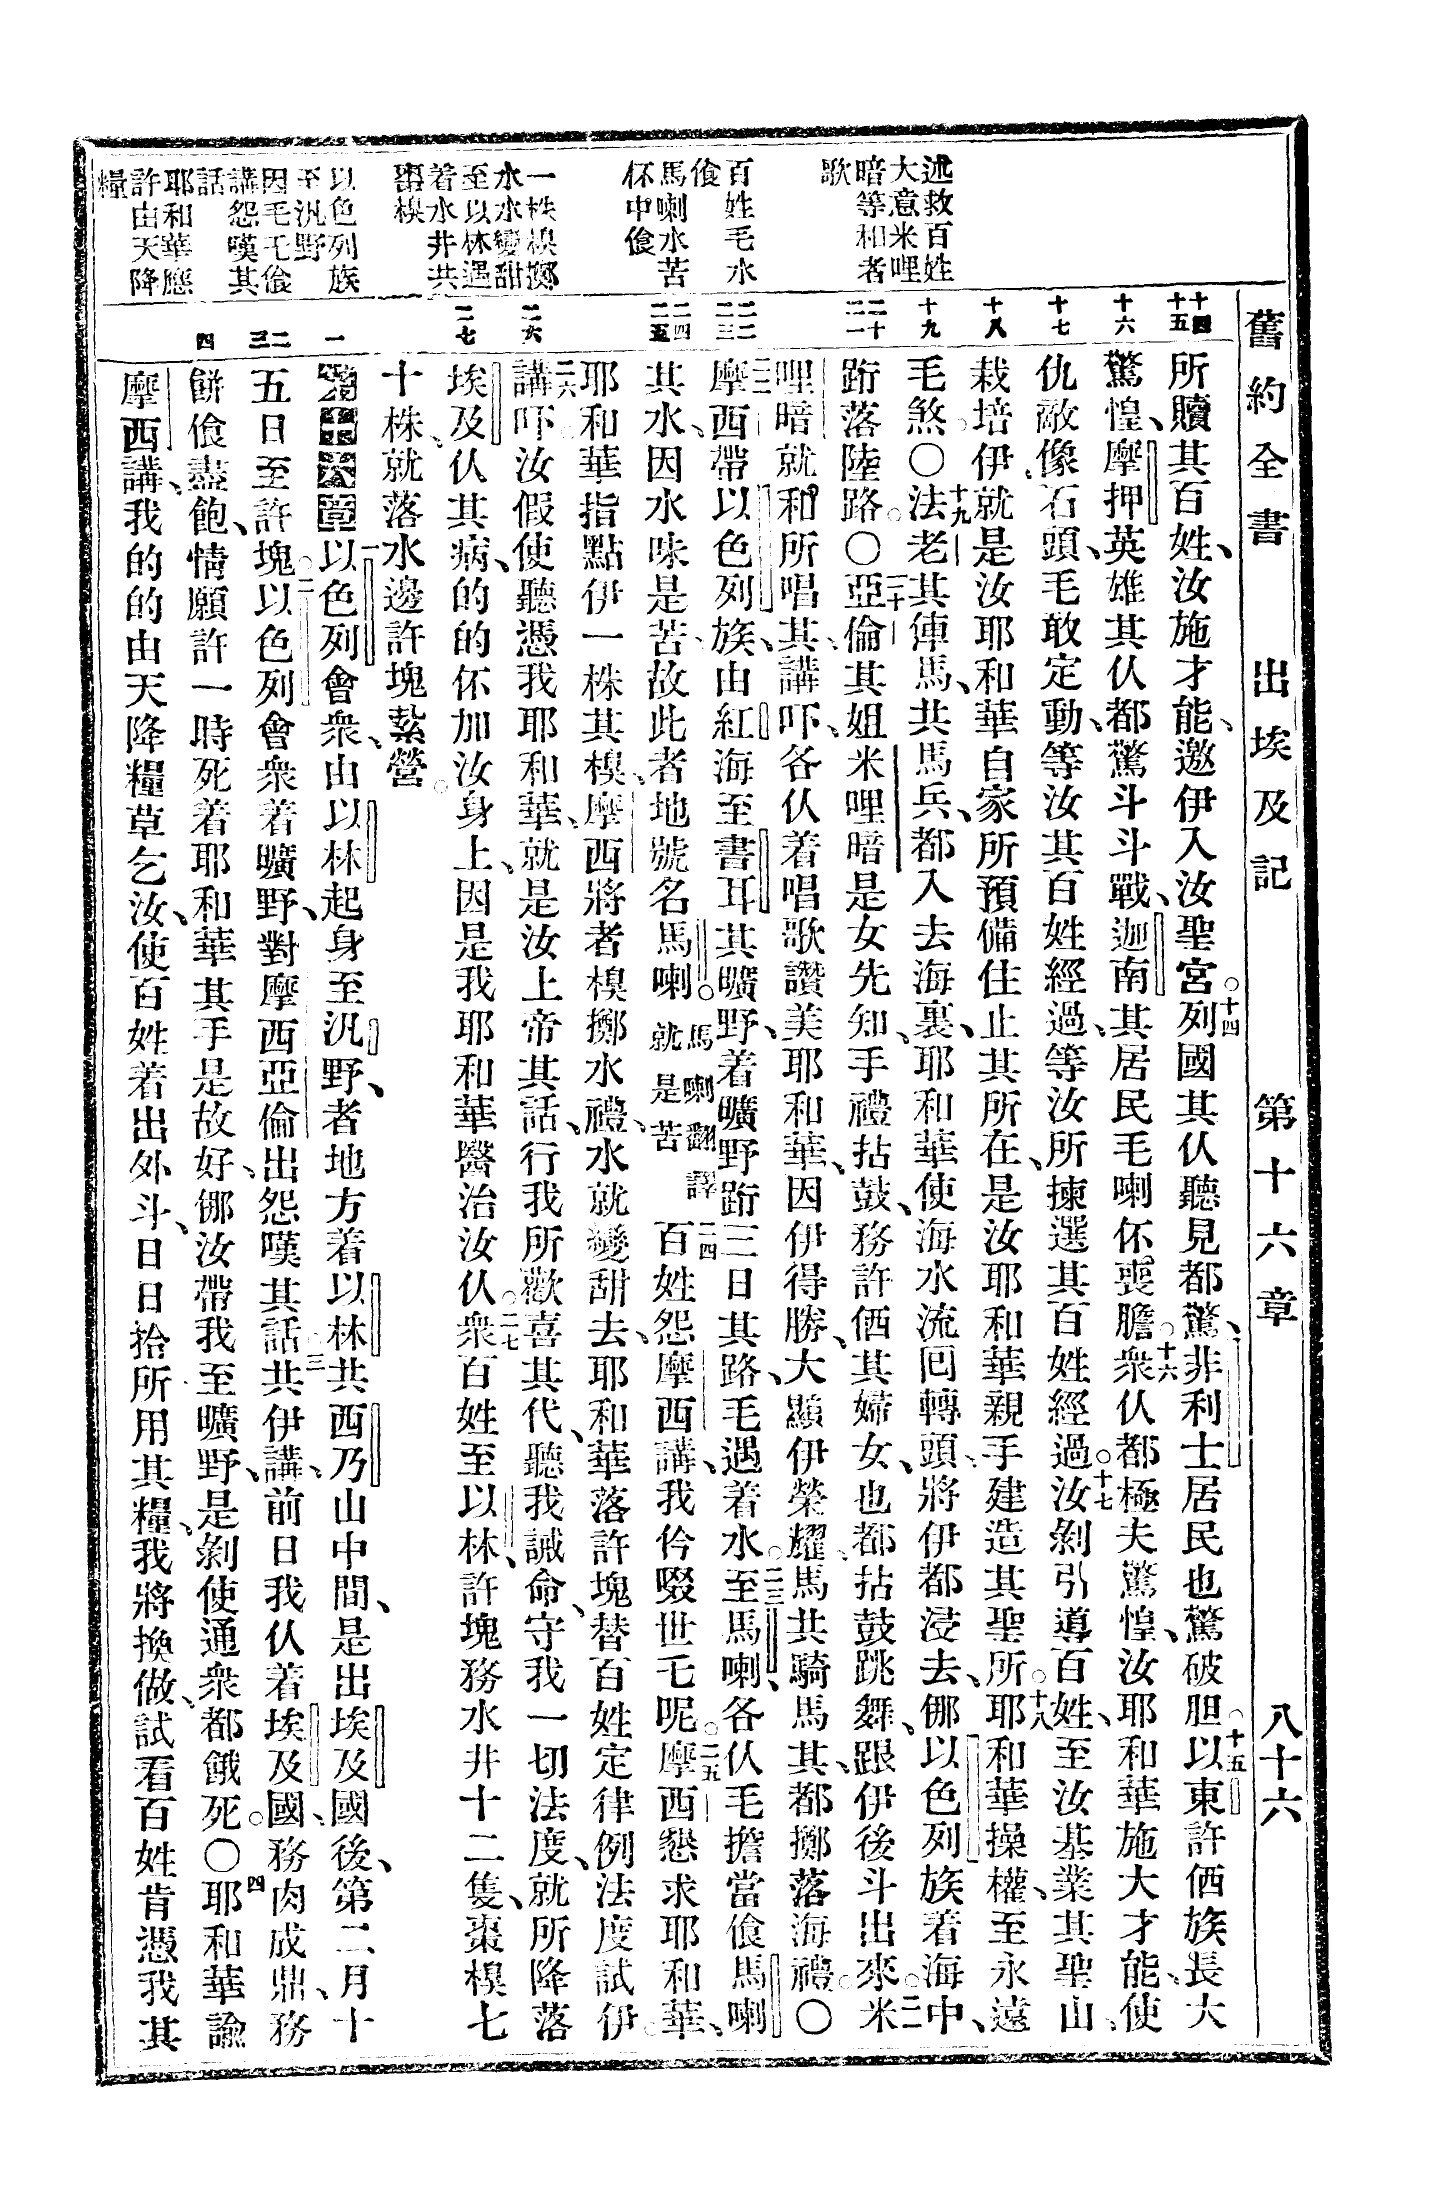 舊約全書　出埃及記　第十六章　八十六
述救百姓
大意米哩
暗等和者
歌
百姓毛水
飧
馬喇水苦
怀中飧
一株槼擲
水水變甜
至以林遇
着水井共
棗槼
以色列族
至汎野
因毛乇飧
講怨嘆其
話
耶和華應
許由天降
糧
十四
十五
十六
十七
十八
十九
二十
二一
二二
二三
二四
二五
二六
二七
一
二
三
四
所贖其百姓、汝施才能、邀伊入汝聖宮。十四列國其仈聽見都驚、非利士居民也驚破胆。十五以東許㑚族長大
驚惶、摩押英雄其仈都驚斗斗戰、迦南其居民毛喇怀喪膽。十六衆仈都極夫驚惶、汝耶和華施大才能、使
仇敵像石頭、毛敢定動、等汝其百姓經過、等汝所揀選其百姓經過。十七汝剝引導百姓、至汝基業其聖山、
栽培伊、就是汝耶和華自家所預備住止其所在、是汝耶和華親手建造其聖所。十八耶和華操權、至永遠
毛煞。〇十九法老其俥馬、共馬兵、都入去海裏、耶和華使海水流囘轉頭、將伊都浸去、儸以色列族着海中、
跲落陸路。〇二十亞倫其姐米哩暗是女先知、手禮拈鼓、務許㑚其婦女、也都拈鼓跳舞、跟伊後斗出來。二一米
哩暗就和所唱其、講吓、各仈着唱歌讚美耶和華、因伊得勝、大顯伊榮耀、馬共騎馬其、都擲落海禮。〇
二二摩西帶以色列族、由紅海至書耳其曠野、着曠野跲三日其路、毛遇着水。二三至馬喇、各仈毛擔當飧馬喇
其水、因水味是苦、故此者地號名馬喇。馬喇翻譯就是苦二四百姓怨摩西講、我仱啜世乇呢。二五摩西懇求耶和華、
耶和華指點伊一株其槼、摩西將者槼擲水禮、水就變甜去、耶和華落許塊替百姓定律例法度試伊。
二六講吓、汝假使聽憑我耶和華、就是汝上帝其話、行我所歡喜其代、聽我誡命、守我一切法度、就所降落
埃及仈其病、的的怀加汝身上、因是我耶和華醫治汝仈。二七衆百姓至以林、許塊務水井十二隻、棗槼七
十株、就落水邊許塊縶營。
第十六章一以色列會衆、由以林起身至汎野、者地方着以林共西乃山中間、是出埃及國後、第二月十
五日至許塊。二以色列會衆着曠野、對摩西亞倫出怨嘆其話、三共伊講、前日我仈着埃及國、務肉成鼎、務
餅飧盡飽、情願許一時死着耶和華其手、是故好、儸汝帶我至曠野、是剝使通衆都餓死。〇四耶和華諭
摩西講、我的的由天降糧草乞汝、使百姓着出外斗、日日拾所用其糧、我將換做、試看百姓肯憑我其